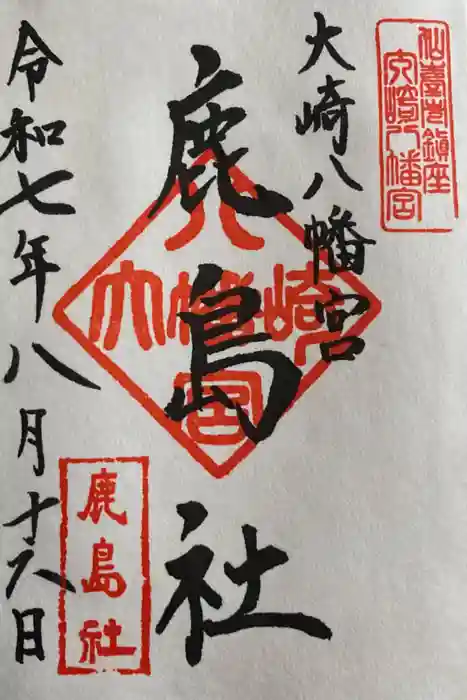 大崎八幡宮
大崎八幡宮
鹿島社
大崎八幡宮
令和七年八月十六日
鹿島社